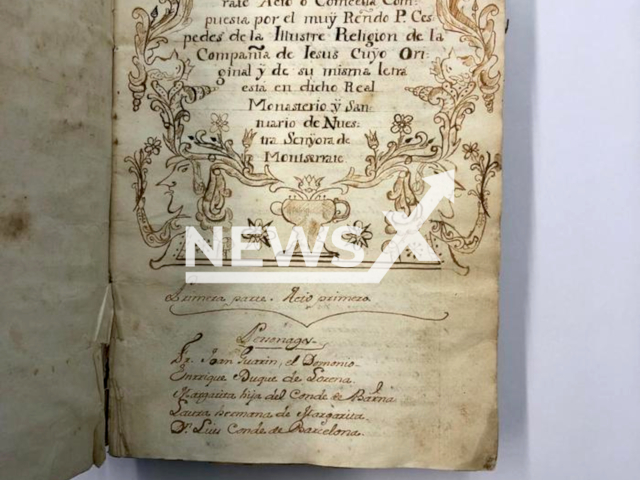 rate Acto o Comedia Com-
puesta por el muÿ Rendo P. Ces
pedes de la Illustre Religion de la
Compañia de Iesus Cuÿo Ori-
ginal ÿ de su misma letra
esta en dicho Real
Monasterio ÿ San-
tuario de Nues-
tra Senÿora de
Montserrate
NEWSX
Primera parte. Acto primero.
Personages.
Fr. Joan Guarin, el Demonio.
Enrrique Duque de Lorena.
Margarita hija del Conde de Barna
Laura hermana de Margarita.
Dn. Luis Conde de Barcelona.